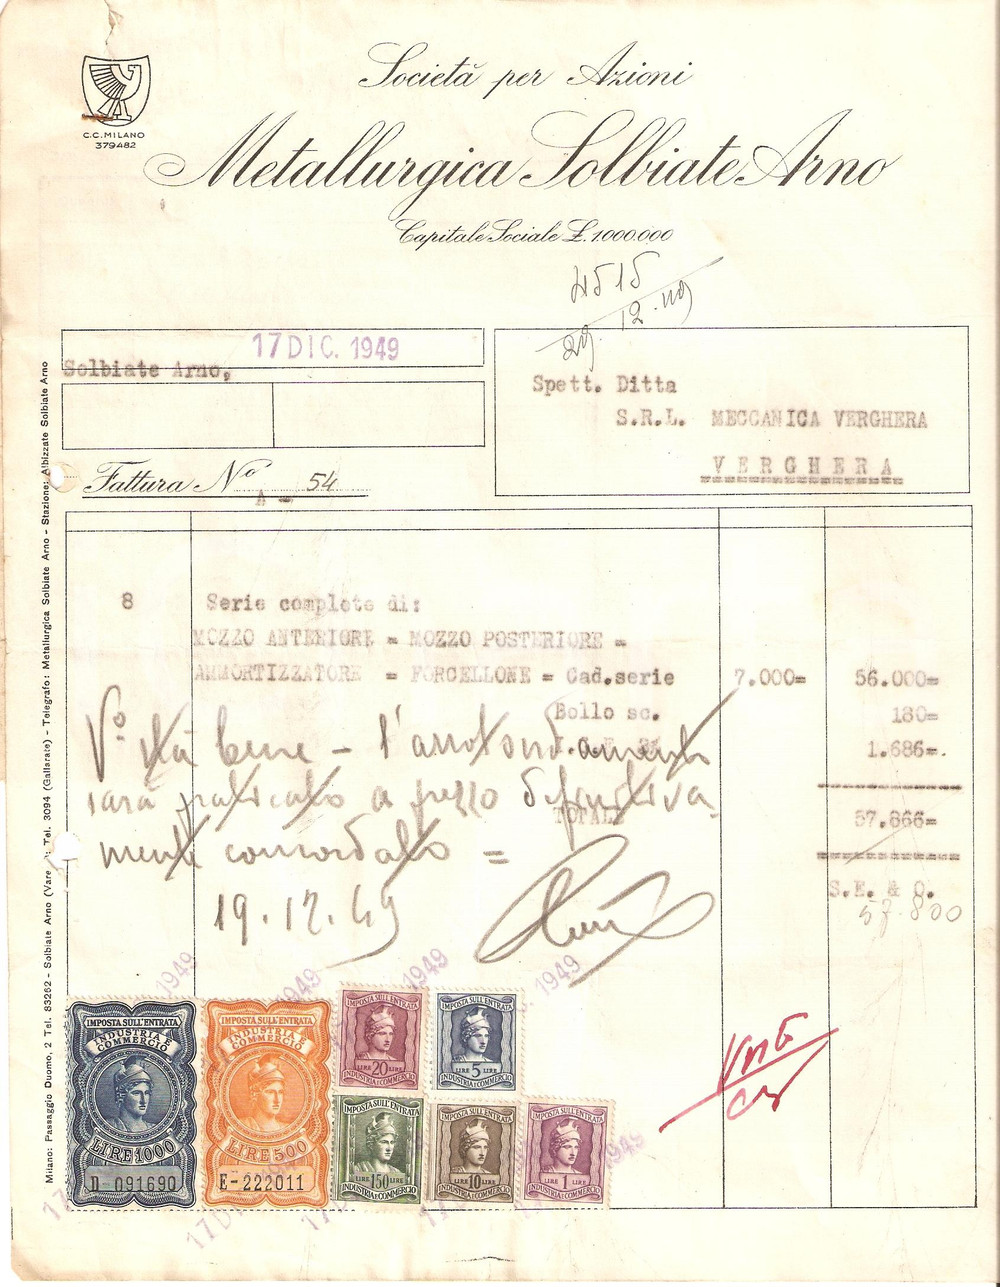 Società per Azioni
C.C. MILANO
379482
Metallurgica Solbiate Arno
Capitale Sociale £. 1.000.000
4515
29.12.49
17 DIC. 1949
Solbiate Arno,
Spett. Ditta
S.R.L. MECCANICA VERGHERA
VERGHERA
Fattura No A - 54
8 Serie complete di:
MOZZO ANTERIORE = MOZZO POSTERIORE =
AMMORTIZZATORE = FORCELLONE = Cad.serie 7.000= 56.000=
Bollo sc. 180=
I.G.E 3% 1.686=.
TOTALE 57.866=
S.E. & O.
57.800
Vº stà bene - l'arrotondamento
sarà praticato a prezzo definitiva
mente concordato =
19.12.49
IMPOSTA SULL'ENTRATA
INDUSTRIA E COMMERCIO
LIRE 1000
D - 091690
IMPOSTA SULL'ENTRATA
INDUSTRIA E COMMERCIO
LIRE 500
E - 222011
IMPOSTA SULL'ENTRATA
LIRE 20 LIRE
INDUSTRIA E COMMERCIO
IMPOSTA SULL'ENTRATA
LIRE 5 LIRE
INDUSTRIA E COMMERCIO
IMPOSTA SULL'ENTRATA
LIRE 150 LIRE
INDUSTRIA E COMMERCIO
IMPOSTA SULL'ENTRATA
LIRE 10 LIRE
INDUSTRIA E COMMERCIO
IMPOSTA SULL'ENTRATA
LIRE 1 LIRE
INDUSTRIA E COMMERCIO
Milano: Passaggio Duomo, 2 Tel. 83262 - Solbiate Arno (Vare : Tel. 3094 (Gallarate) - Telegrafo: Metallurgica Solbiate Arno - Stazione: Albizzate Solbiate Arno